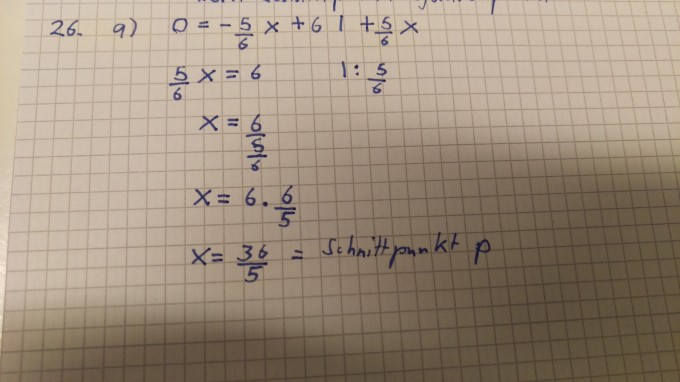 26. a) 0 = - 5/6 x + 6 | + 5/6 x
5/6 x = 6 | : 5/6
x = 6/5/6
x = 6 · 6/5
x = 36/5 = Schnittpunkt p